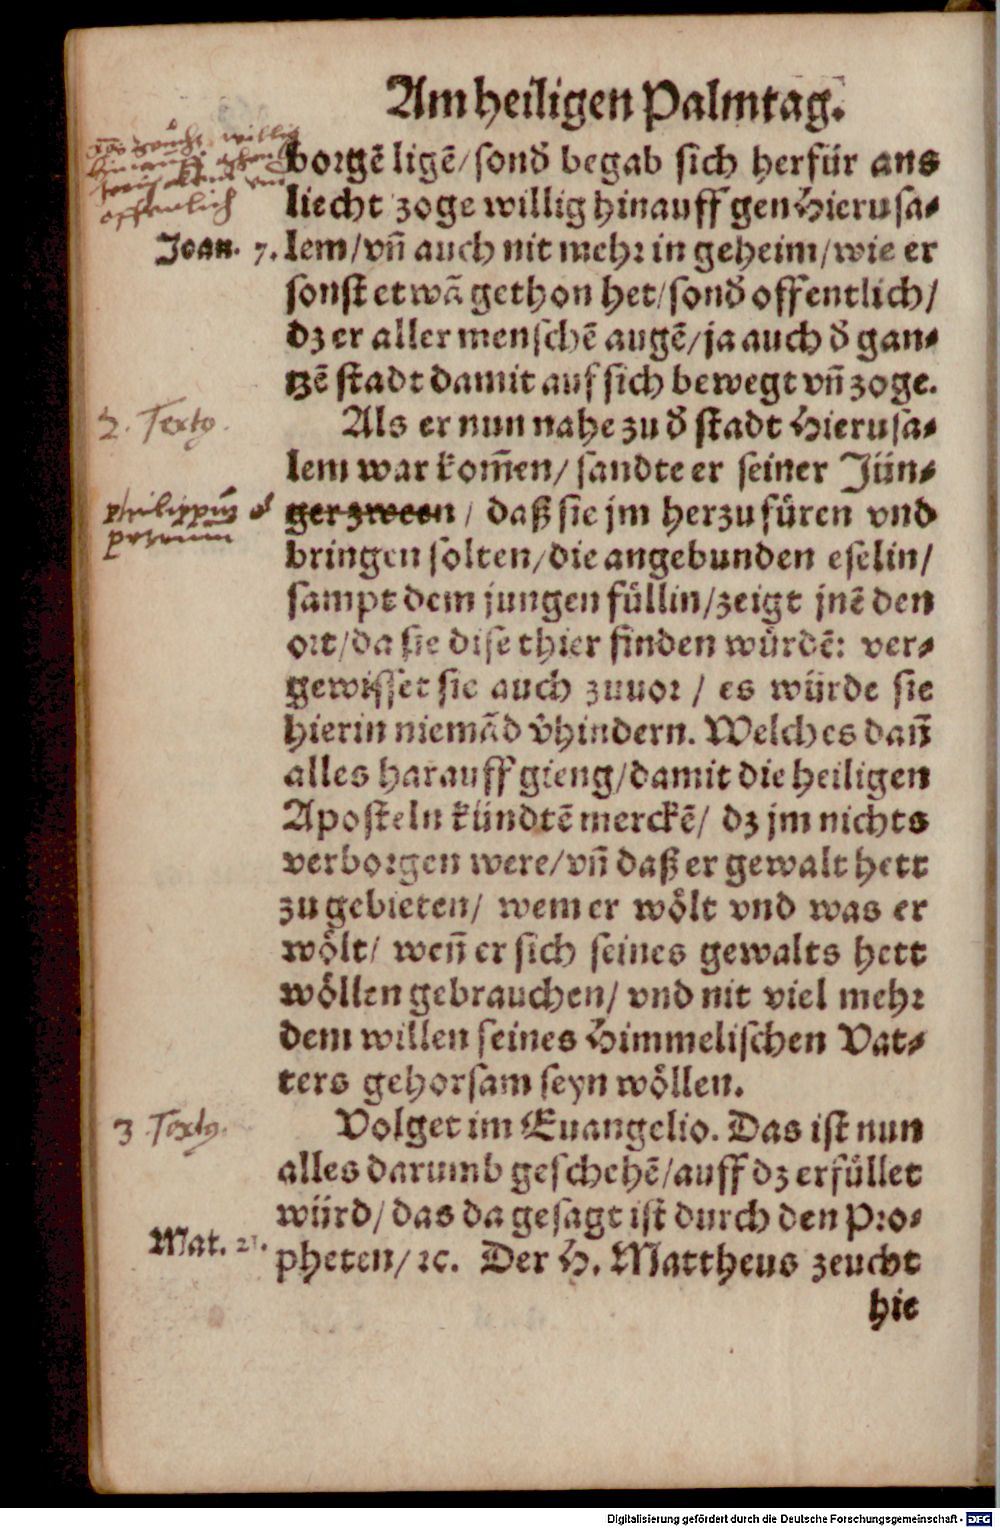 Am heiligen Palmtag.
borgẽ ligẽ/ sonď begab sich herfür ans
liecht zoge willig hinauff gen Hierusa-
lem/ vñ auch nit mehr in geheim/ wie er
sonst etwã gethon het/ sonď offentlich/
dz er aller menschẽ augẽ/ ja auch ď gan-
tzẽ stadt damit auf sich bewegt vñ zoge.
willig
offenlich
Joan. 7.
Als er nun nahe zu ď stadt Hierusa-
lem war kom̃en/ sandte er seiner Jün-
ger zween / daß sie jm herzu füren vnd
bringen solten/ die angebunden eselin/
sampt dem jungen füllin/ zeigt jnẽ den
ort/ da sie dise thier finden wůrdẽ: ver-
gewisset sie auch zuuor / es würde sie
hierin niemãd v̂hindern. Welches dañ
alles harauff gieng/ damit die heiligen
Aposteln kündtẽ merckẽ/ dz jm nichts
verborgen were/ vñ daß er gewalt hett
zu gebieten/ wem er wȯlt vnd was er
wȯlt/ weñ er sich seines gewalts hett
wȯllen gebrauchen/ vnd nit viel mehr
dem willen seines Himmelischen Vat-
ters gehorsam seyn wȯllen.
2. Textg.
philippũ &
petrum
Volget im Euangelio. Das ist nun
alles darumb geschehẽ/ auff dz erfüllet
würd/ das da gesagt ist durch den Pro-
pheten/ ꝛc. Der H. Mattheus zeucht
hie
3 Textg.
Mat. 21.
Digitalisierung gefördert durch die Deutsche Forschungsgemeinschaft - DFG